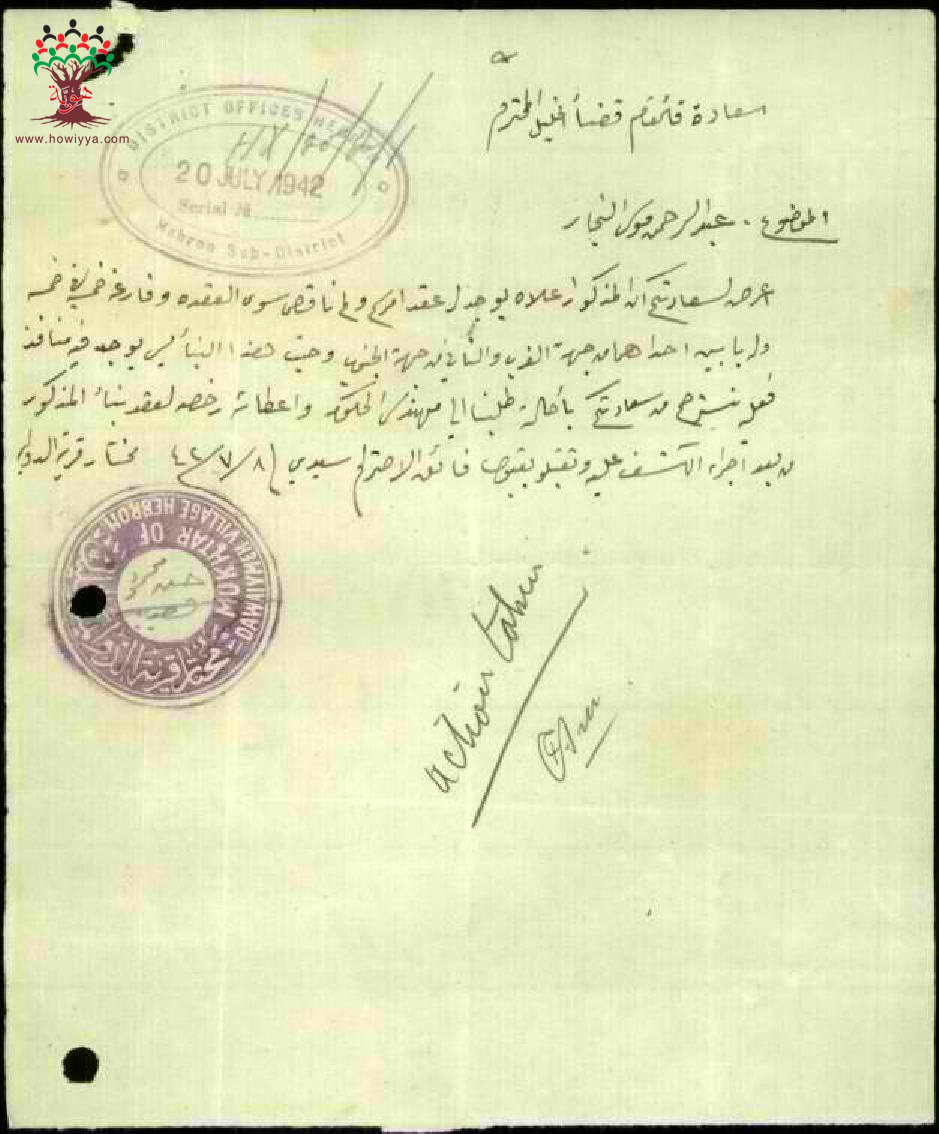 هوية
www.howiyya.com
DISTRICT OFFICES HEBRON
20 JULY 1942
Serial No
Hebron Sub-District
سعادة قائمقام قضأ الخليل المحترم
الموضوع . عبد الرحمن موسى النجار
اعرض لسعادتكم ان المذكور اعلاه يوجد له عقد ولم ناقص سوى العقده وفارغة خمسة في خمسه
وله بابين احداهما من جهة الغرب والثاني من جهة الجنوب وحيث هذا البنأ ليس يوجد فيه منافذ
نسترحم من سعادتكم بأحالة طلبنا الى مهندس الحكومة واعطائه رخصه لعقد بنأ المذكور
من بعد اجراء الكشف عليه وتفضلو بقبول فائق الاحترام سيدي ٤٢/٧/٨ مختار قرية الدوايمه
MUKHTAR OF
DAWAIMEH VILLAGE HEBRON
مختار قرية الدوايمة
action taken